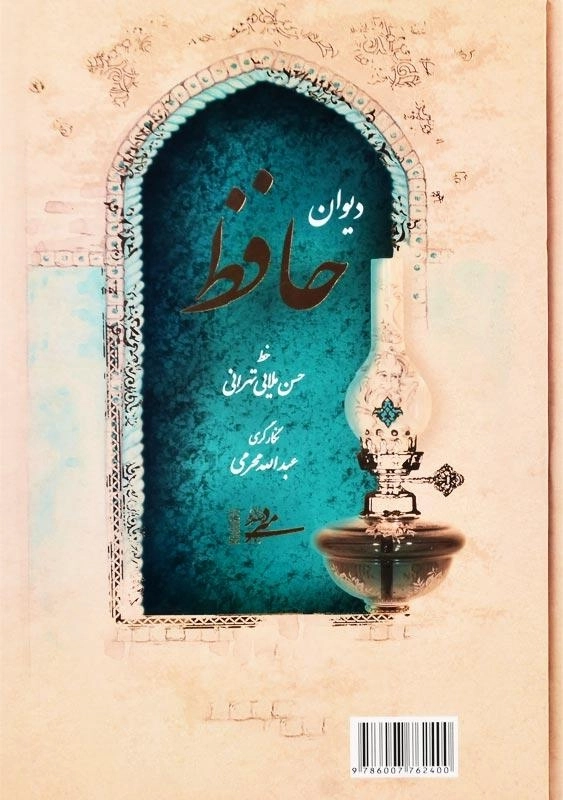 دیوان
حافظ
خط
حسن ملایی تهرانی
نگارگری
عبدالله محرمی
9 786007 762400